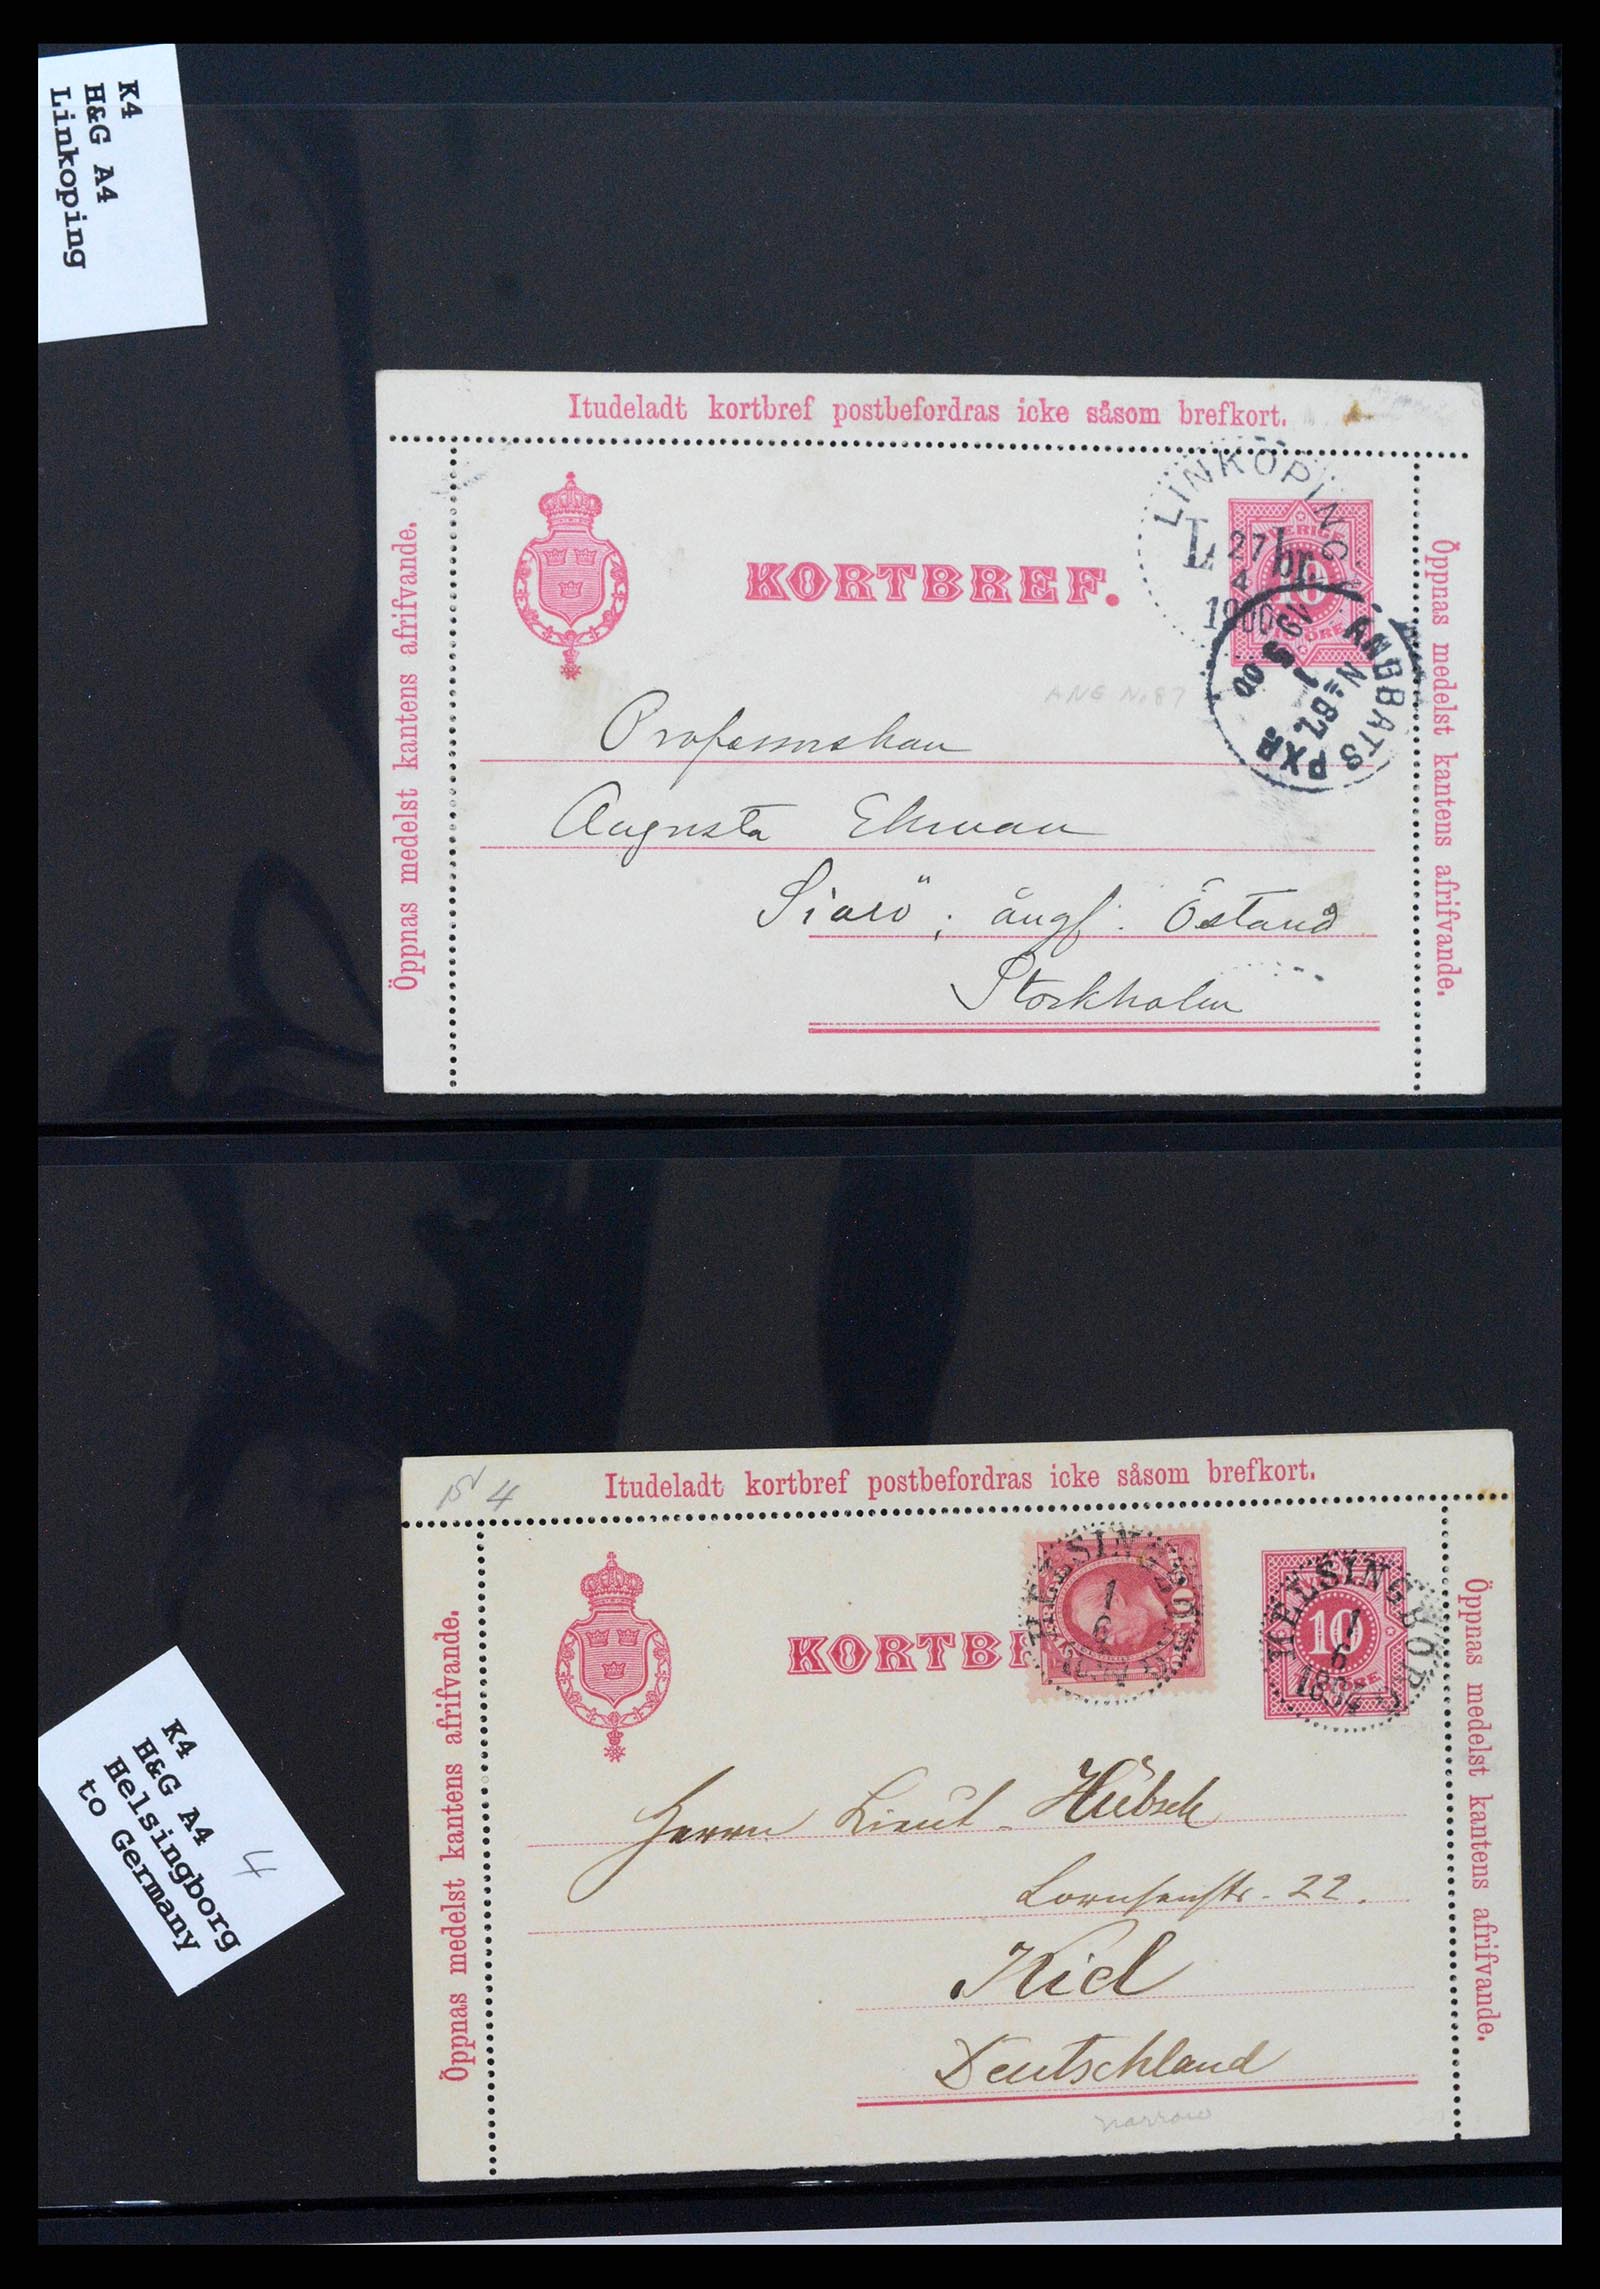 K4
H&G A4
Linkoping
Itudeladt kortbref postbefordras icke såsom brefkort.
Öppnas medelst kantens afrifvande.
Öppnas medelst kantens afrifvande.
KORTBREF.
LINKÖPING
L 27 br.
4
1900
10
ÅNGBÅTS PXP.
Nº 87
00
ANG No 87
Professorskan
Augusta Ekman
Siarö; ångf. Östanå
Stockholm
Itudeladt kortbref postbefordras icke såsom brefkort.
4
Öppnas medelst kantens afrifvande.
Öppnas medelst kantens afrifvande.
KORTB
HELSINGBORG
1
6
HELSINGBORG
1
6
1894
10
ÖRE
Herrn Lieut. Hübsch
Lornsenstr. 22.
Kiel
Deutschland
narrow
K4
H&G A4
Helsingborg
to Germany
4